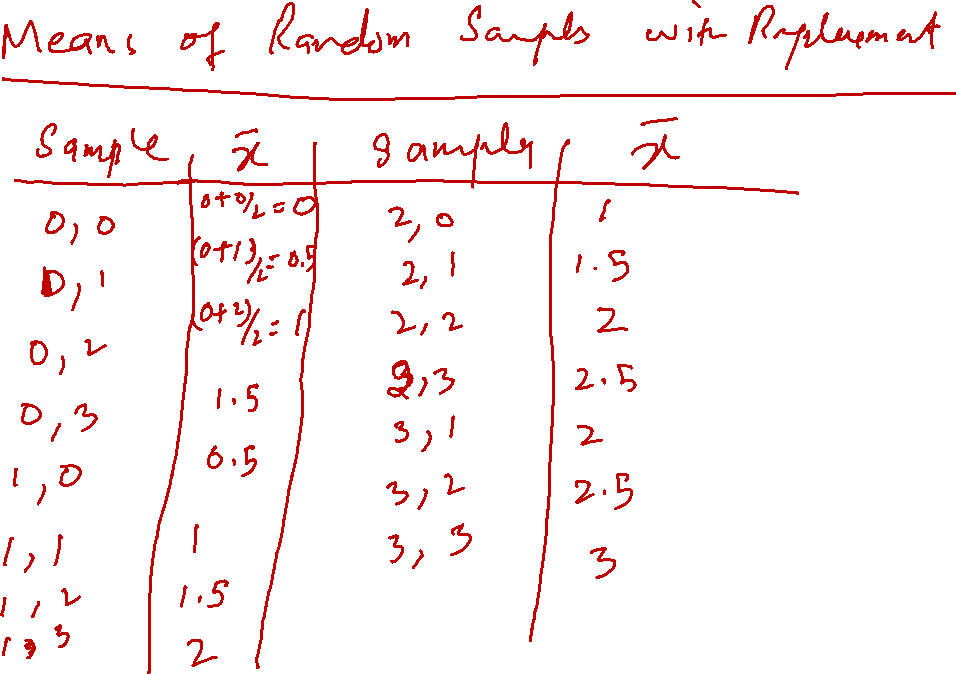 Means of Random Samples with Replacement
Sample x̄ Samples x̄
0,0 0+0/2=0 2,0 1
0,1 (0+1)/2=0.5 2,1 1.5
0,2 (0+2)/2=1 2,2 2
0,3 1.5 2,3 2.5
1,0 0.5 3,1 2
1,1 1 3,2 2.5
1,2 1.5 3,3 3
1,3 2